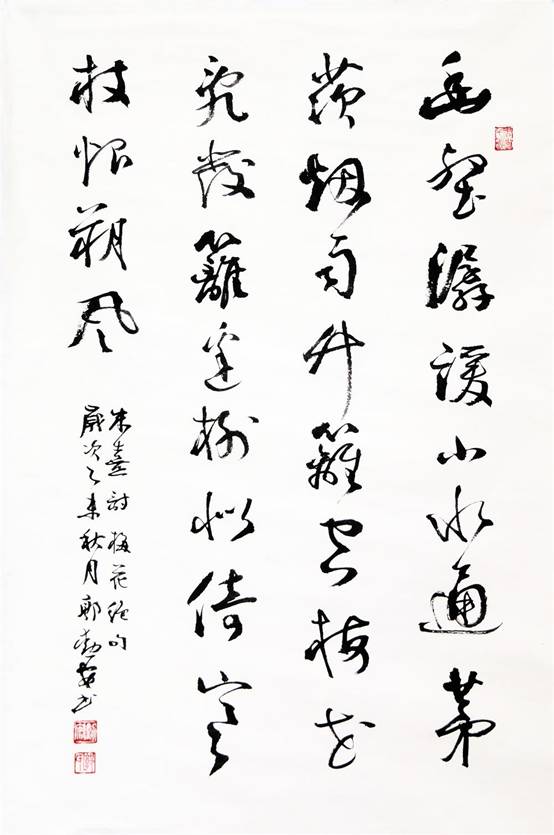 幽壑潺湲小水通茅
茨烟雨竹籬空梅花
亂發籬邊樹似倚寒
枝恨朔风
朱熹詩梅花絕句
歲次乙未秋月郭書